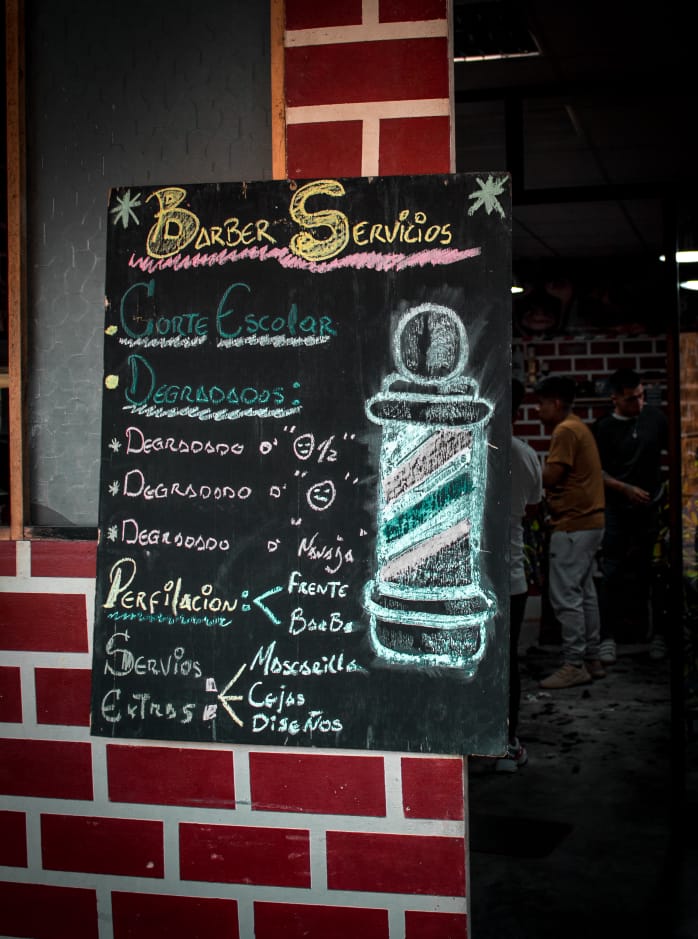 BARBER SERVICIOS
CORTE ESCOLAR
DEGRADADOS:
DEGRADADO 0 "½"
DEGRADADO 0 " "
DEGRADADO 0 "NAVAJA"
PERFILACION:
FRENTE
BARBA
SERVIOS
EXTRAS:
MASCARILLA
CEJAS
DISEÑOS